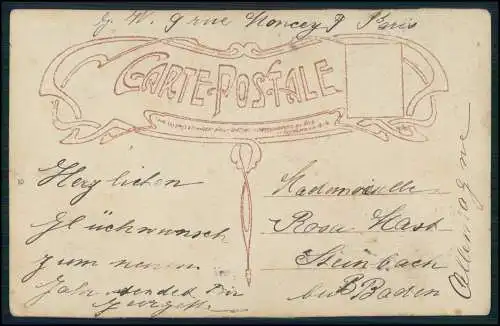 G. W. 9 rue Moncey 9 Paris
CARTE-POSTALE
Herzlichen
Glückwunsch
zum neuen
Jahr sendet Dir
Mademoiselle
Rosa Mast
Steinbach
bei B Baden
Allemagne